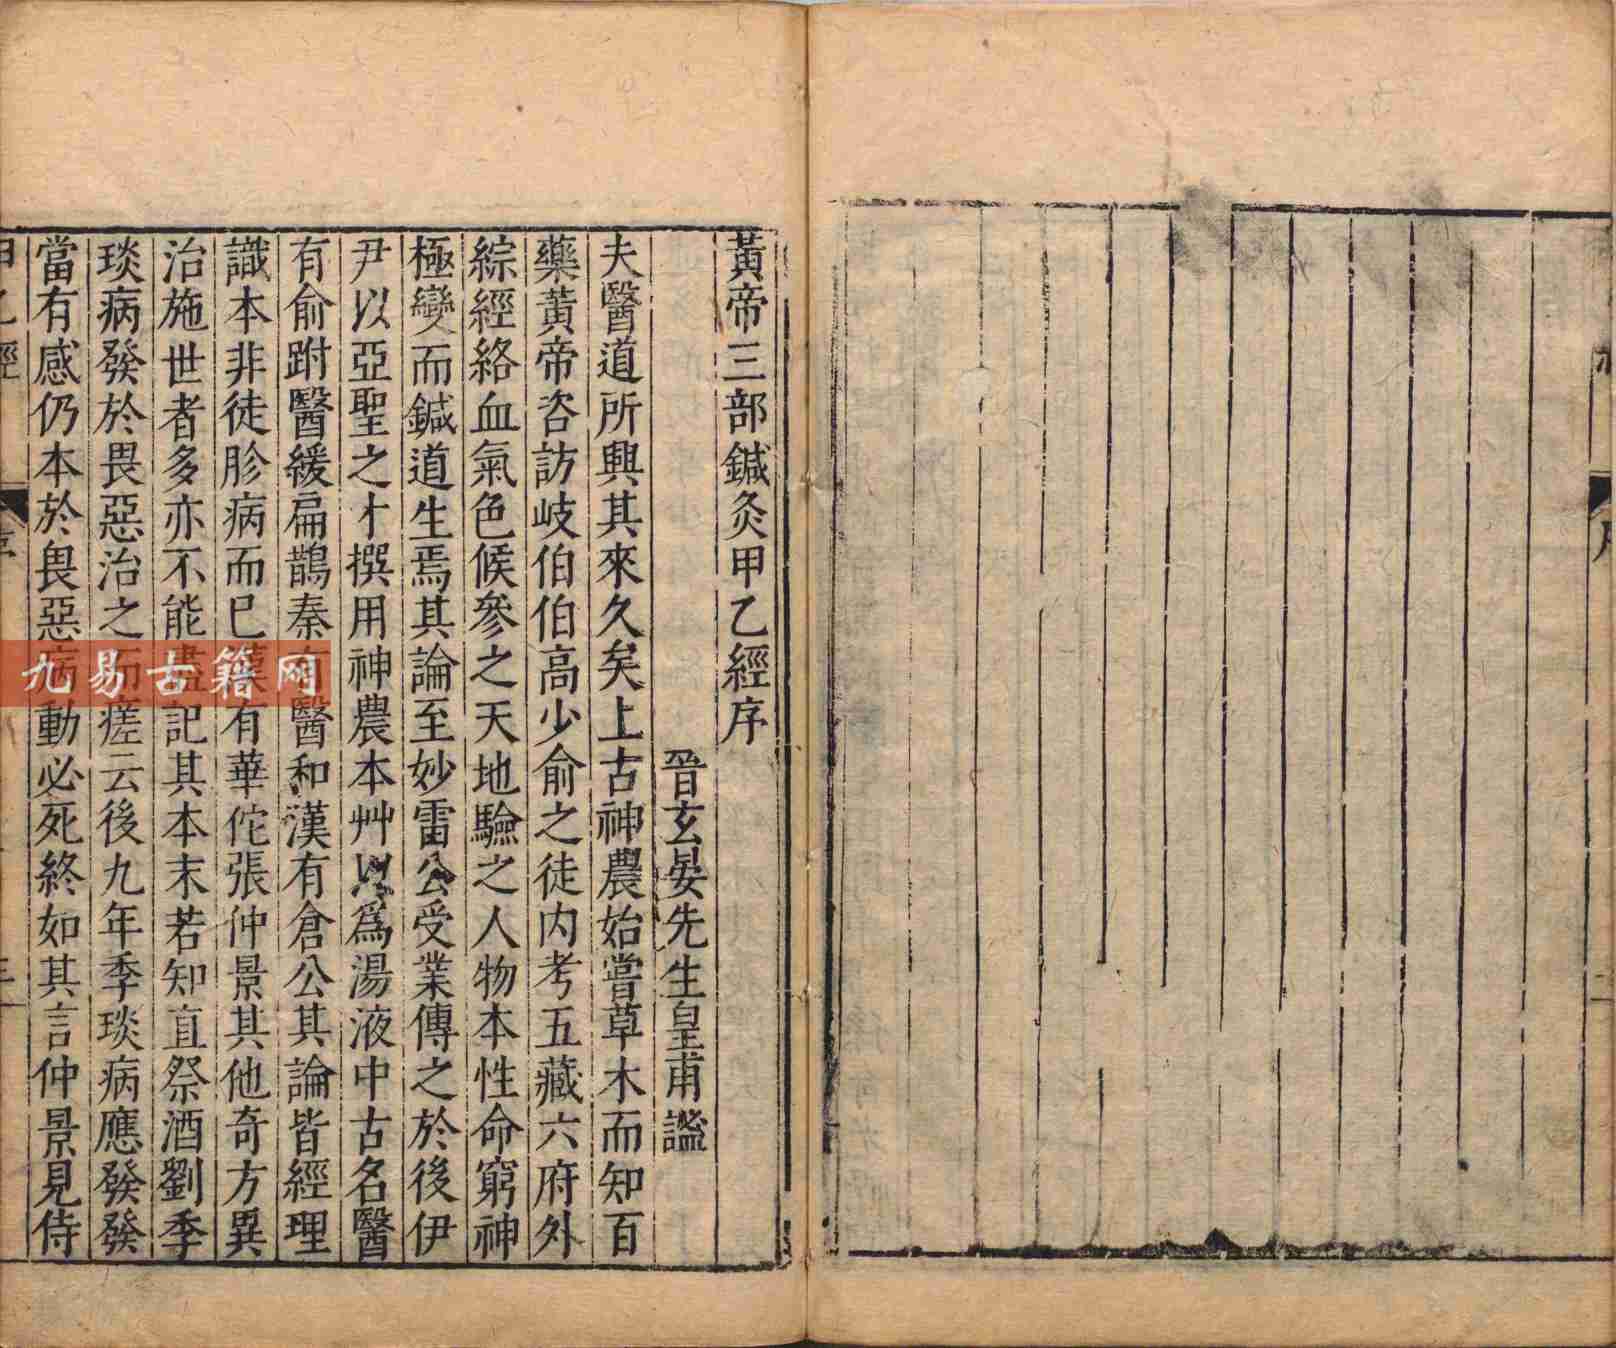 黃帝三部鍼灸甲乙經序
晉玄晏先生皇甫謐
夫醫道所興其來久矣上古神農始嘗草木而知百
藥黃帝咨訪岐伯伯高少俞之徒内考五藏六府外
綜經絡血氣色候參之天地驗之人物本性命窮神
極變而鍼道生焉其論至妙雷公受業傳之於後伊
尹以亞聖之才撰用神農本艸以爲湯液中古名醫
有俞跗醫緩扁鵲秦有醫和漢有倉公其論皆經理
識本非徒胗病而已漢有華佗張仲景其他奇方異
治施世者多亦不能盡記其本末若知直祭酒劉季
琰病發於畏惡治之而瘥云後九年季琰病應發發
當有感仍本於畏惡病動必死終如其言仲景見侍
甲乙經
序
九易古籍网